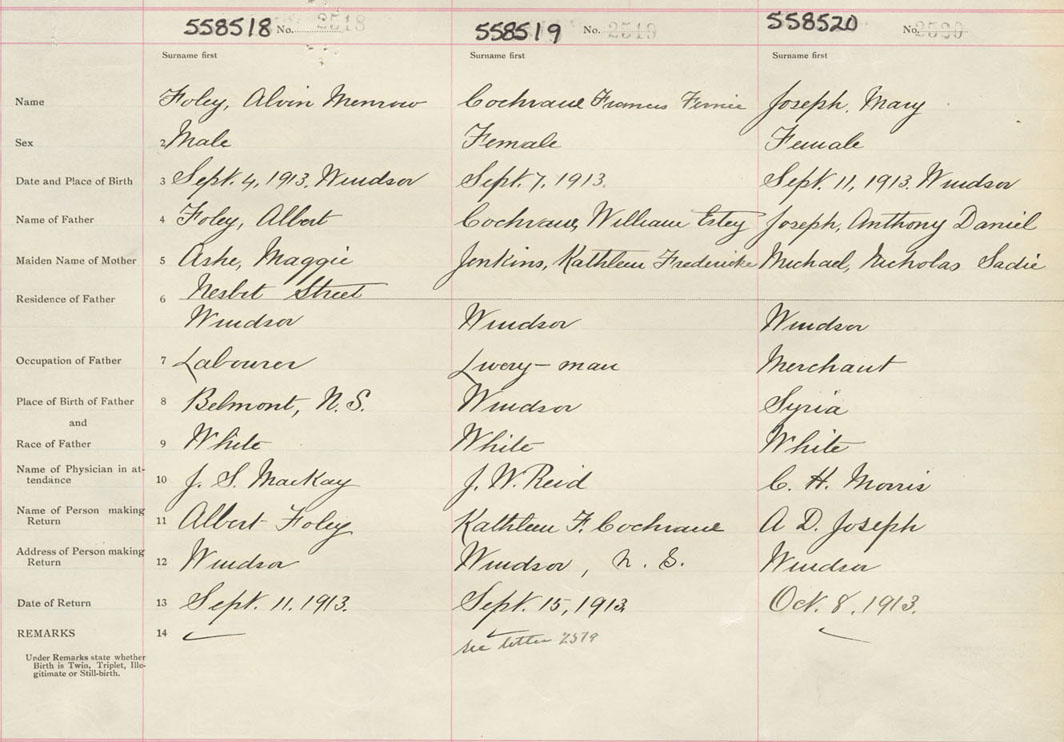 558518 No. 2518 558519 No. 2519 558520 No. 2520
Surname first Surname first Surname first
Name Foley, Alvin Cochrane Frances Joseph, Mary
Sex 2 Male Female Female
Date and Place of Birth 3 Sept. 4, 1913, Windsor Sept. 7, 1913. Sept. 11, 1913, Windsor
Name of Father 4 Foley, Albert Cochrane, William Estey Joseph, Anthony Daniel
Maiden Name of Mother 5 Ashe, Maggie Jenkins, Kathleen Michael, Nicholas Sadie
Nesbit Street
Residence of Father 6
Windsor Windsor Windsor
Occupation of Father 7 Labourer Livery-man Merchant
Place of Birth of Father 8 Belmont, N.S. Windsor Syria
and
Race of Father 9 White White White
Name of Physician in at-
tendance 10 J. S. MacKay J. W. Reid C. H. Morris
Name of Person making
Return 11 Albert Foley Kathleen F. Cochrane A D. Joseph
Address of Person making
Return 12 Windsor Windsor, N. S. Windsor
Date of Return 13 Sept. 11, 1913. Sept. 15, 1913 Oct. 8, 1913.
REMARKS 14
see letter 2519
Under Remarks state whether
Birth is Twin, Triplet, Ille-
gitimate or Still-birth.